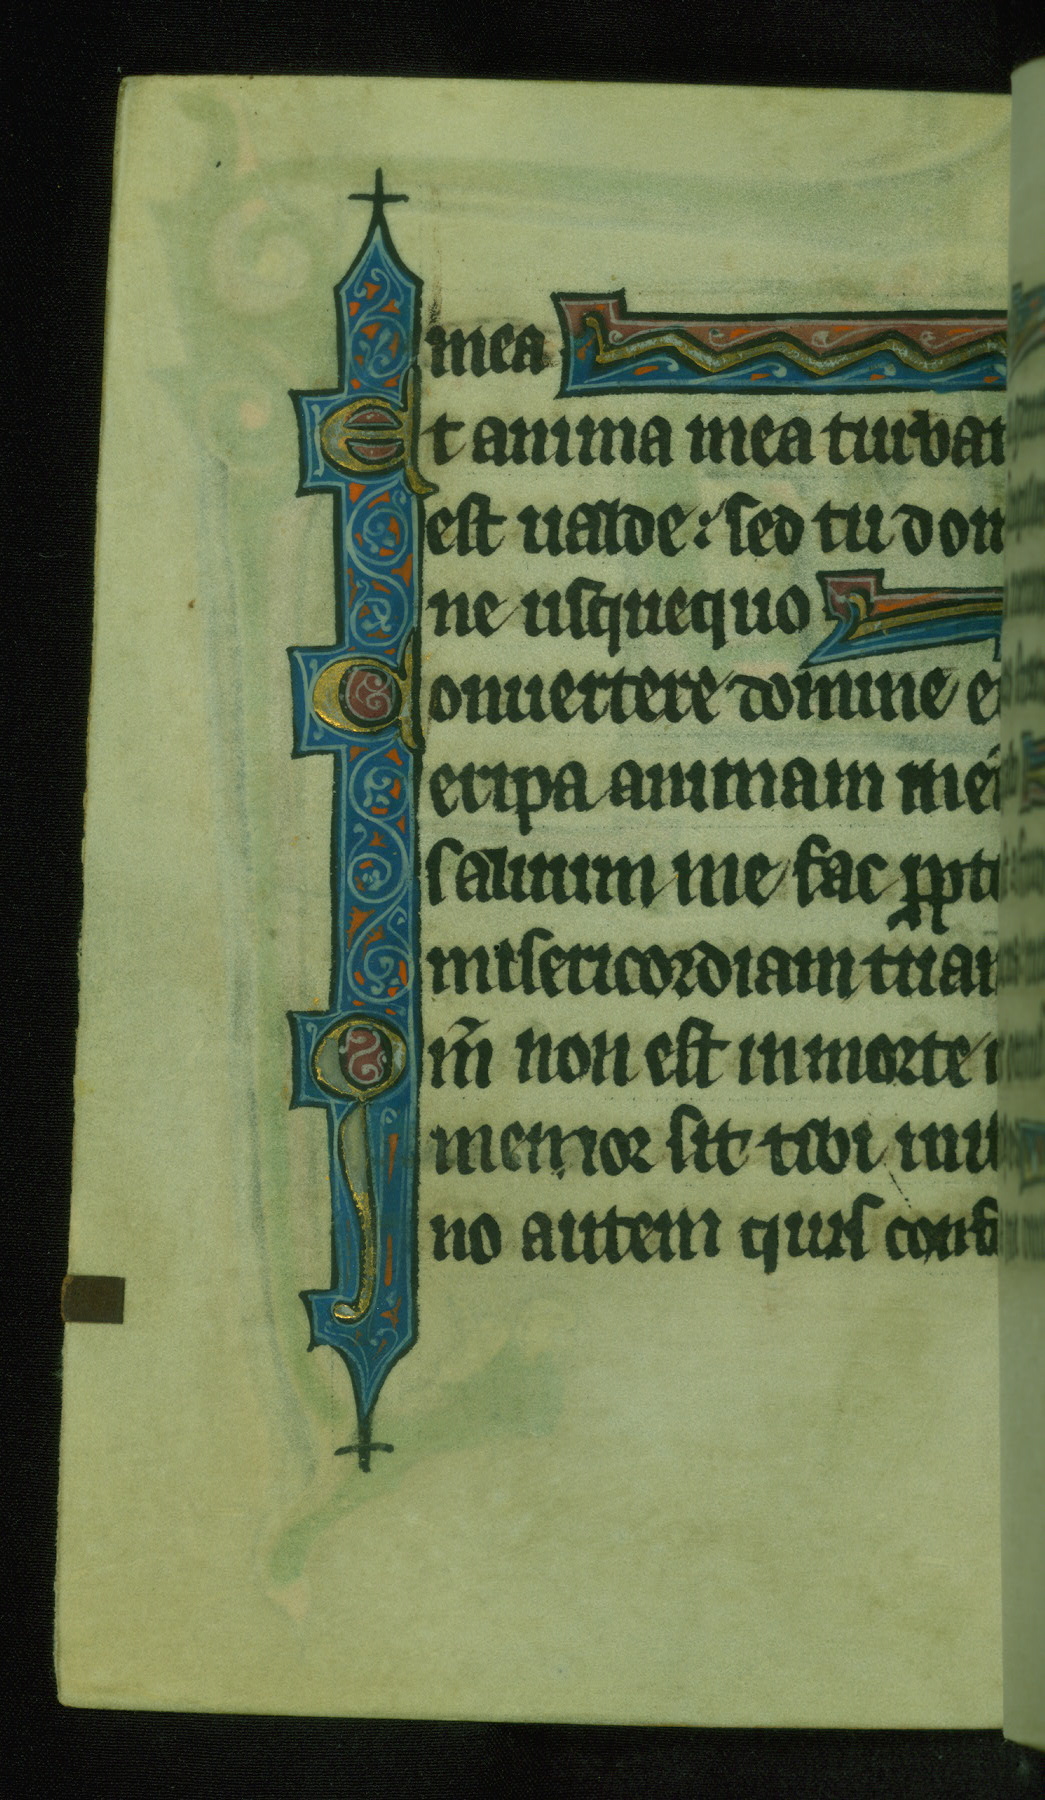 mea
Et anima mea turbat
est ualde: sed tu dom
ne usquequo
Conuertere domine et
eripa animam meā
saluum me fac ꝓpt
misericordiam tuam
Qm̄ non est in morte
memor sit tibi in
no autem quis confi